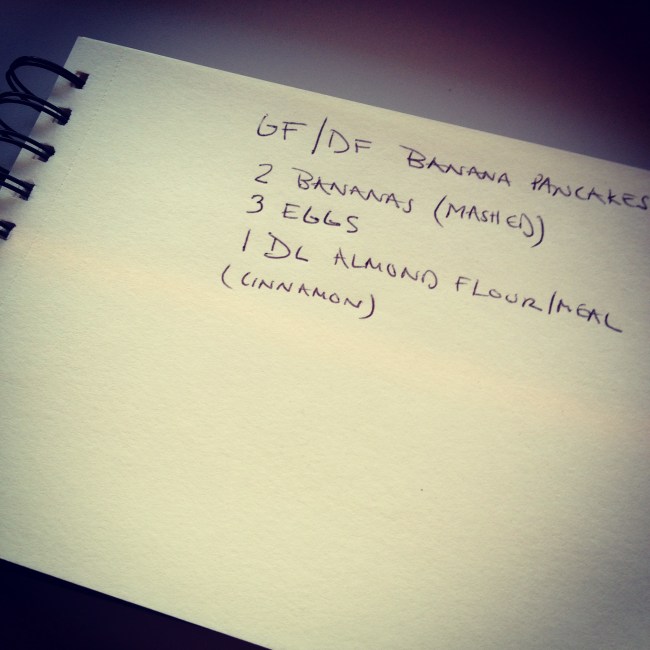 GF/DF BANANA PANCAKES
2 BANANAS (MASHED)
3 EGGS
1 DL ALMOND FLOUR/MEAL
(CINNAMON)